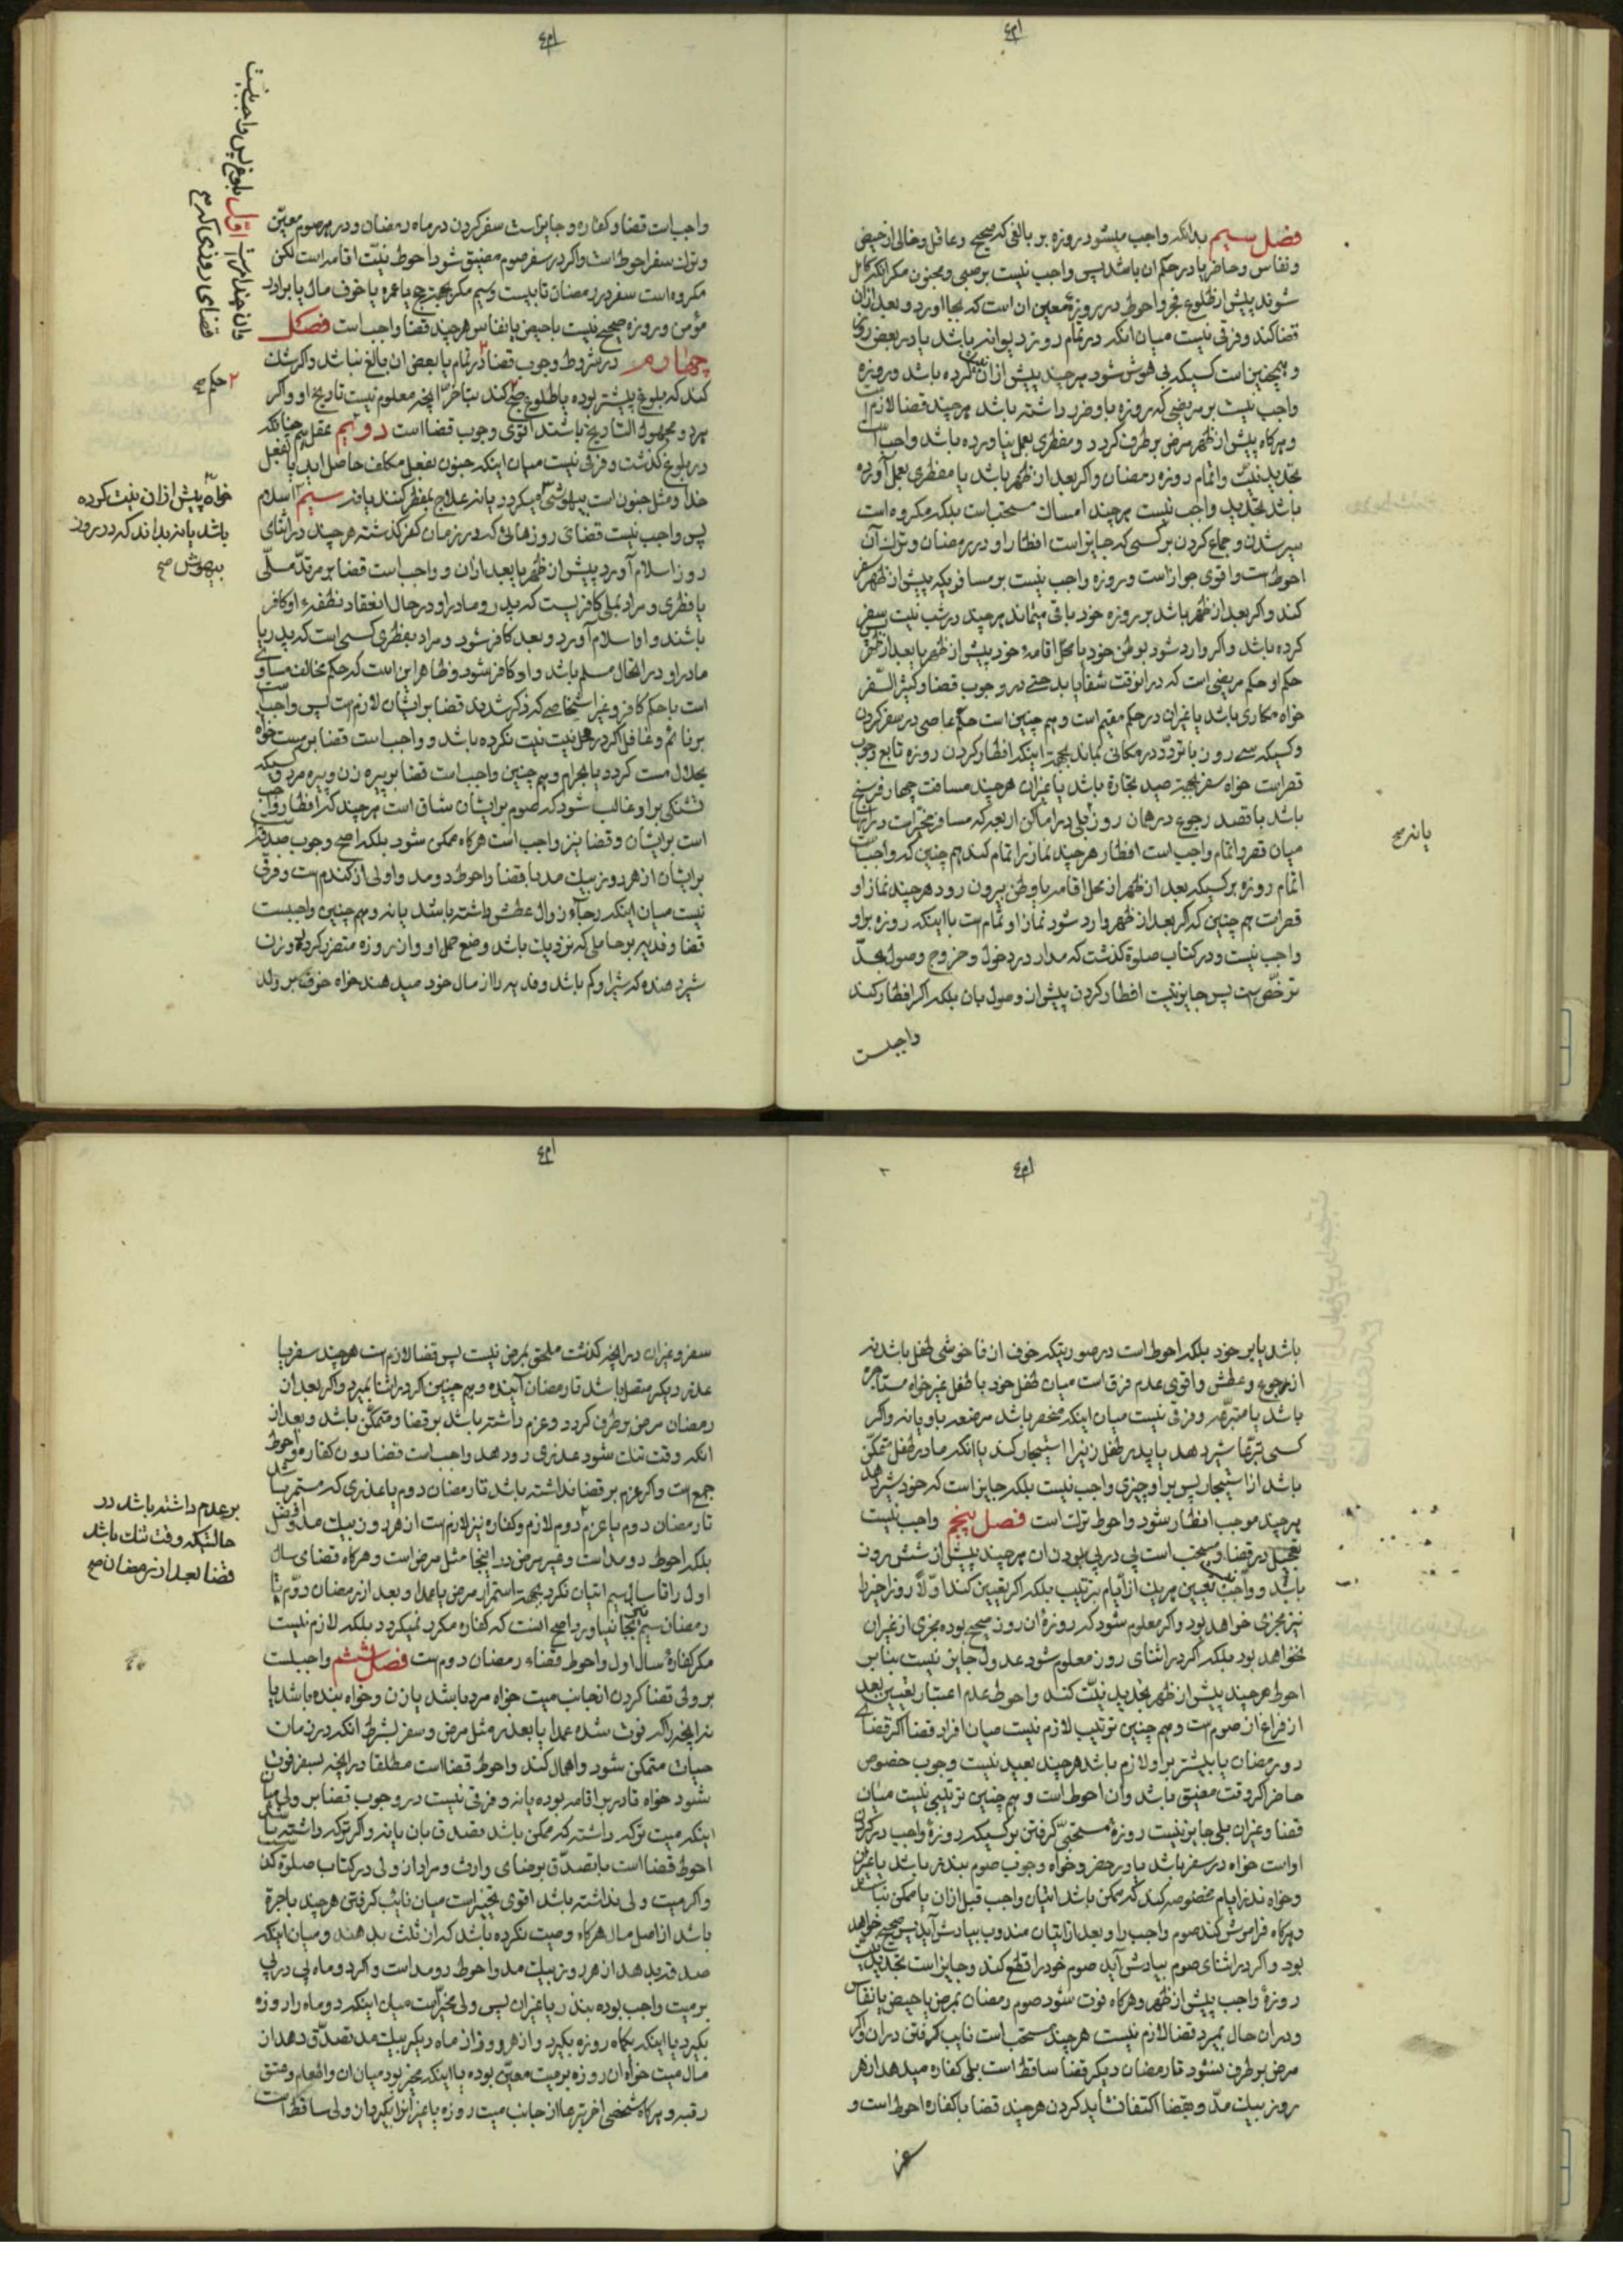 فصل سیم بدانکه واجب میشود روزه بر بالغی که صحیح و عاقل و خالی از حیض
و نفاس و حاضر یا در حکم ان باشد پس واجب نیست بر صبی و مجنون مکر انکه کامل
شوند پیش از طلوع فجر و احوط در روزهٔ معین ان است که بجا اورد و بعد ازان
قضا کند و فرقی نیست میان انکه در تمام روز دیوانه باشد یا در بعض
و همچنین است کسیکه بی هوش شود هر چند پیش از ان نیت کرده باشد و روزه
واجب نیست بر مریضی که روزه باو ضرر داشته باشد هر چند قضا لازم است
و هر کاه پیش از ظهر مرض بر طرف کردد و مفطری بعمل نیاورده باشد واجب است
تجدید نیّت و اتمام روزه رمضان و اکر بعد از ظهر باشد یا مفطری بعمل آورده
باشد تجدید واجب نیست هر چند امساک مستحب است بلکه مکروه است
سیر شدن و جماع کردن بر کسی که جایز است افطار او در رمضان و ترک آن
احوط است و اقوی جواز است و روزه واجب نیست بر مسافریکه پیش از ظهر سفر
کند و اکر بعد از ظهر باشد بر روزه خود باقی میماند هر چند در شب نیت سفر
کرده باشد و اکر وارد شود بوطن خود یا محل اقامهٔ خود پیش از ظهر یا بعد از ظهر
حکم او حکم مریضی است که در انوقت شفا یابد حتی در وجوب قضا و کثیر السّفر
خواه مکاری باشد یا غیر ان در حکم مقیم است و هم چنین است حکم عاصی در سفر کردن
و کسیکه سی روز با تردّد در مکانی بماند بجهت اینکه افطار کردن روزه تابع وجوب
قصر است خواه سفر بجهت صید تجارة باشد یا غیر ان هر چند مسافت چهار فرسخ
باشد با قصد رجوع در همان روز بلی در اماکن اربعه که مسافر مخیّر است در انها
میان قصر و اتمام واجب است افطار هر چند نماز را تمام کند هم چنین که واجب است
اتمام روزه بر کسیکه بعد از ظهر از محل اقامه یا وطن بیرون رود هر چند نماز او
قصر است هم چنین که اکر بعد از ظهر وارد شود نماز او تمام است با اینکه روزه بر او
واجب نیست و در کتاب صلوة کذشت که مدار در دخول و خروج وصول بحدّ
ترخّص است پس جایز نیست افطار کردن پیش از وصول بان بلکه اکر افطار کند
واجبست
یا نه صح
واجب است قضا و کفاره و جایز است سفر کردن در ماه رمضان و در هر صوم معیّن
و ترک سفر احوط است و اکر در سفر صوم مضیق شود احوط نیّت اقامه است لکن
مکروه است سفر در رمضان تا بیست و سیم مکر بجهت حج یا عمره یا خوف مال یا برادر
مؤمن و روزه صحیح نیست با حیض یا نفاس هر چند قضا واجب است فصل
چهارم در شروط وجوب قضا در تمام یا بعض ان بالغ نباشد و اکر شک
کند که بلوغ پیشتر بوده یا طلوع صبح کند بتاخر انچه معلوم نیست تاریخ او و اکر
هر دو مجهول التاریخ باشند اقوی وجوب قضا است دویّم عقل هم چنانکه
در بلوغ کذشت و فرقی نیست میان اینکه جنون بفعل مکلف حاصل اید یا بفعل
خدا و مثل جنون است بیهوشی میکردد یا نه علاج بمفطر کنند یا نه سیّم اسلام
پس واجب نیست قضای روزهائی که در زمان کفر کذشته هر چند در اثنای
روز اسلام آورد پیش از ظهر یا بعد از ان و واجب است قضا بر مرتدّ ملّی
یا فطری و مراد بملی کافریست که پدر و مادر او در حال انعقاد نطفهٔ او کافر
باشند و او اسلام آورد و بعد کافر شود و مراد بفطری کسی است که پدر یا
مادر او در انحال مسلم باشد و او کافر شود و ظاهر این است که حکم مخالف مساوی
است با حکم کافر و غیر اشخاصی که ذکر شدید قضا بر ایشان لازم است پس واجب است
بر نائم و غافل اکر در محل نیت نیت نکرده باشد و واجب است قضا بر مست خواه
بحلال مست کردد یا بحرام و هم چنین واجب است قضا بر پیره زن و پیره مرد و کسیکه
تشنکی بر او غالب شود که صوم بر ایشان شاق است هر چند که افطار واجب
است بر ایشان و قضا نیز واجب است هر کاه ممکن شود بلکه اصح وجوب صدقه است
بر ایشان از هر روز بیک مد با قضا و احوط دو مد و اولی از کندم است و فرقی
نیست میان اینکه رجآء زوال عطش داشته باشد یا نه و هم چنین واجبست
قضا و فدیه بر حاملی که نزدیک باشد وضع حمل او و از روزه متضرر کردد و زن
شیر دهنده که شیر او کم باشد و فدیه را از مال خود میدهند خواه خوف بر ولد
اوّل بلوغ پس واجب نیست
قضای روزی که صح
۲ حکم صح
خواه پیش از ان نیت کرده
باشد یا نه بداند که در روز
بیهوش صح
باشد یا بر خود بلکه احوط است در صورتیکه خوف از ناخوشی طفل باشد نه
از جوع و عطش و اقوی عدم فرق است میان طفل خود یا طفل غیر خواه مستاجره
باشد یا متبرّعه و فرقی نیست میان اینکه منحصر باشد مرضعه باو یا نه و اکر
کسی تبرّعا شیر دهد یا پدر طفل زنیرا استیجار کند یا انکه مادر طفل متمکّن
باشد از استیجار پس بر او چیزی واجب نیست بلکه جایز است که خود شیر دهد
هر چند موجب افطار شود و احوط ترک است فصل پنجم واجب نیست
تعجیل در قضا و مستحب است پی در پی بودن ان هر چند بیش از شش روز
باشد و واجب نیست تعیین هر یک از ایام بترتیب بلکه اکر تعیین کند اوّلاً روز اخر را
نیز مجزی خواهد بود و اکر معلوم شود که روزهٔ ان روز صحیح بوده مجزی از غیر ان
نخواهد بود بلکه اکر در اثنای روز معلوم شود عدول جایز نیست بنا بر
احوط هر چند پیش از ظهر تجدید نیّت کند و احوط عدم اعتبار تعیین بعد
از فراغ از صوم است و هم چنین ترتیب لازم نیست میان افراد قضا اکر قضای
دو رمضان یا بیشتر بر او لازم باشد هر چند بعید نیست وجوب خصوص
حاضر اکر وقت مضیق باشد و ان احوط است و هم چنین ترتیبی نیست میان
قضا و غیر ان بلی جایز نیست روزهٔ مستحبّی کرفتن بر کسیکه روزهٔ واجب در کردن
اوست خواه در سفر باشد یا در حضر و خواه وجوب صوم بنذر باشد یا غیر ان
و خواه نذر ایام مخصوصه کند که ممکن باشد اتیان واجب قبل از ان یا ممکن نباشد
و هر کاه فراموش کند صوم واجب را و بعد از اتیان مندوب بیادش آید پس صحیح خواهد
بود و اکر در اثنای صوم بیادش آید صوم خود را قطع کند و جایز است تجدید نیّت
روزهٔ واجب پیش از ظهر و هر کاه فوت شود صوم رمضان بمرض یا حیض یا نفاس
و در ان حال بمیرد قضا لازم نیست هر چند مستحب است نایب کرفتن در ان و اکر
مرض بر طرف نشود تا رمضان دیکر قضا ساقط است بلی کفاره میدهد از هر
روز بیک مدّ و بقضا اکتفا نشاید کردن هر چند قضا با کفاره احوط است و
سفر و غیر ان در انچه کذشت ملحق بمرض نیست پس قضا لازم است هر چند سفر یا
عذر دیکر متصل باشد تا رمضان آینده و هم چنین اکر در اثنا بمیرد و اکر بعد از ان
رمضان مرض بر طرف کردد و عزم داشته باشد بر قضا و متمکّن باشد و بعد از
انکه وقت تنک شود عذری رو دهد واجب است قضا دون کفاره و احوط
جمع است و اکر عزم بر قضا نداشته باشد تا رمضان دوم یا عذری که مستمر باشد
تا رمضان دوم یا عزم دوم لازم و کفاره نیز لازم است از هر روز بیک مد و افضل
بلکه احوط دو مد است و غیر مرض در اینجا مثل مرض است و هر کاه قضای سال
اول را تا سال سیم اتیان نکرد بجهت استمرار مرض یا عمدا و بعد از رمضان دوّم تا
رمضان سیم نیز بجا نیاورد اصح اینست که کفاره مکرر نمیکردد بلکه لازم نیست
مکر کفارهٔ سال اول و احوط قضاء رمضان دوم است فصل ششم واجبست
بر ولی قضا کردن از جانب میت خواه مرد باشد یا زن و خواه بنده باشد یا
نه انچه را که فوت شده عمدا یا بعذر مثل مرض و سفر بشرط انکه در زمان
حیات متمکن شود و اهمال کند و احوط قضا است مطلقا در انچه بسفر فوت
شود خواه قادر بر اقامه بوده یا نه و فرقی نیست در وجوب قضا بر ولی میان
اینکه میت ترکه داشته که ممکن باشد تصدق بان یا نه و اکر ترکه داشته باشد
احوط قضا است یا تصدّق برضای وارث و مراد از ولی در کتاب صلوة کذشت
و اکر میت ولی نداشته باشد اقوی تخییر است میان نائب کرفتن هر چند باجرة
باشد از اصل مال هر کاه وصیت نکرده باشد که از ثلث بدهند و میان اینکه
صدقه بدهد از هر روز بیک مد و احوط دو مد است و اکر دو ماه پی در پی
بر میت واجب بوده بنذر یا غیر ان پس ولی مخیّر است میان اینکه دو ماه را روزه
بکیرد یا اینکه یکماه روزه بکیرد و از هر روز از ماه دیکر بیک مد تصدّق دهد از
مال میت خواه ان روزه بر میت معیّن بوده یا اینکه مخیّر بود میان ان و اطعام و عتق
رقبه و هر کاه شخصی اخر تبرعا از جانب میت روزه یا غیر انرا بکیرد از ولی ساقط است
بر عدم داشته باشد در
حالتیکه وقت تنک باشد
قضا بعد از رمضان صح